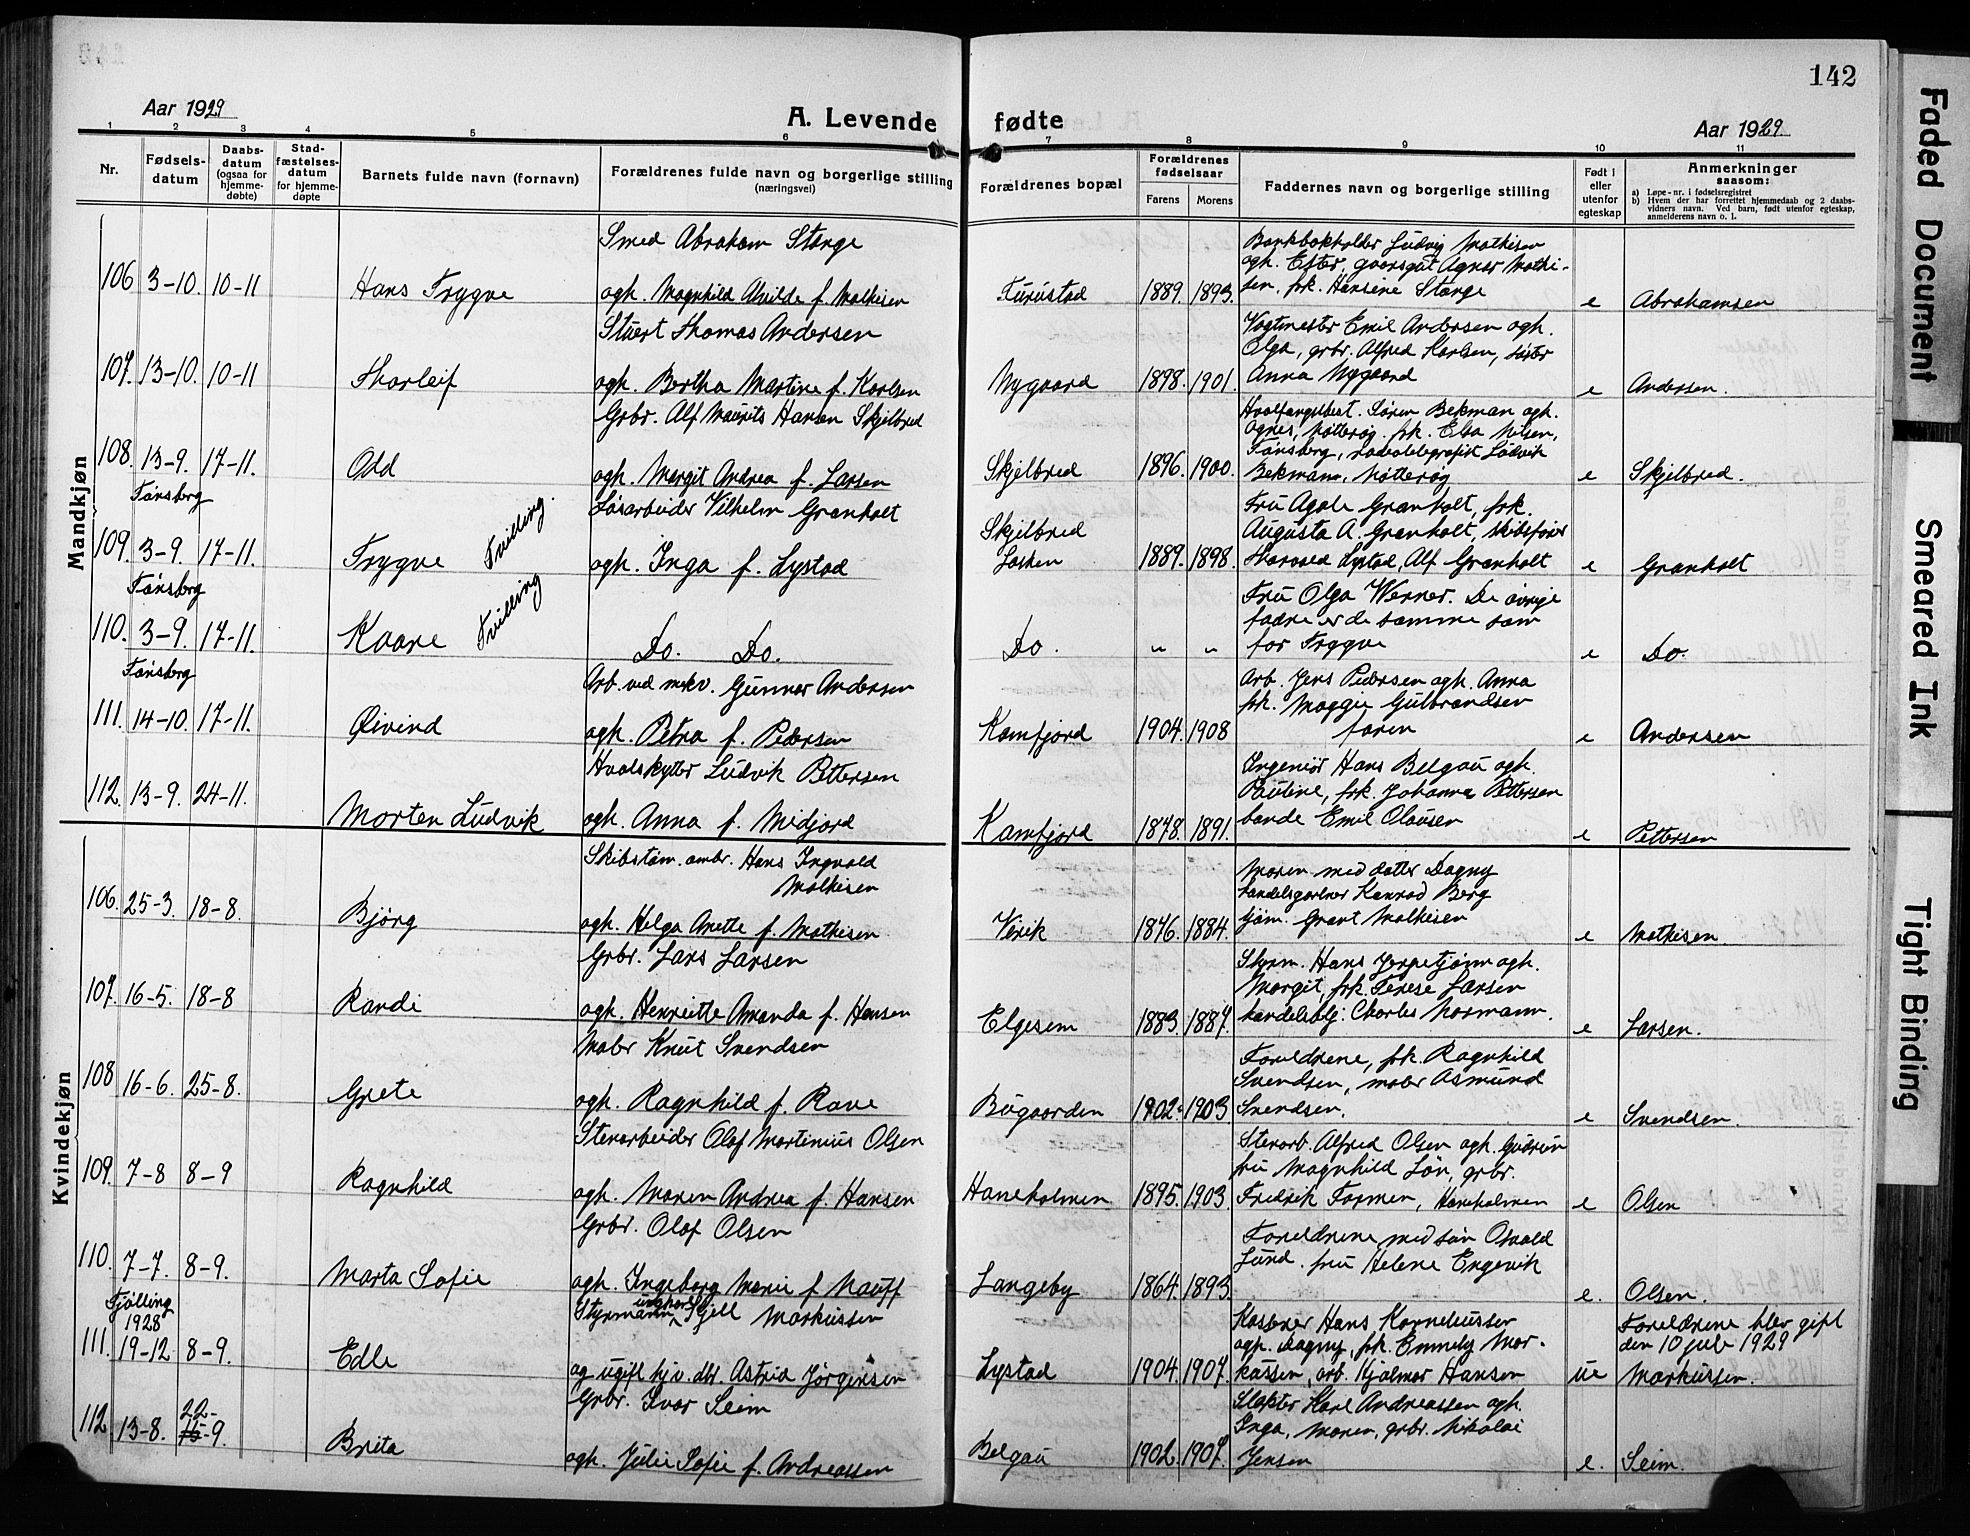 142
Aar 1929
A. Levende fødte
Aar 1929.
1 2 3 4 5 6 7 8 9 10 11
Nr.
Fødsels-
datum
Daabs-
datum
(ogsaa for
hjemme-
døbte)
Stad-
fæstelses-
datum
for hjemme-
døpte
Barnets fulde navn (fornavn)
Forældrenes fulde navn og borgerlige stilling
(næringsvei)
Forældrenes bopæl
Forældrenes
fødselsaar
Farens Morens
Faddernes navn og borgerlige stilling
Født i
eller
utenfor
egteskap
Anmerkninger
saasom:
a) Løpe-nr. i fødselsregistret
b) Hvem der har forrettet hjemmedaab og 2 daabs-
vidners navn. Ved barn, født utenfor egteskap,
anmelderens navn o. l.
Mandkjøn
106 3-10. 10-11
Hans Trygve
Smed Abraham Stange
ogh. Magnhild Alvilde f. Mathisen
Furustad
1889. 1893.
Bankbokholder Ludvig Mathisen
ogh. Ester, gaardsgut Agnar Mathi-
sen, frk. Hansine Stange
e
Abrahamsen
107. 13-10. 10-11
Thorleif
Stuert Thomas Andersen
ogh. Bertha Martine f. Karlsen
Nygaard
1898. 1901.
Vogtmester Emil Andersen ogh.
Olga, grbr. Alfred Karlsen, søster
Anna Nygaard
e
Andersen.
108. 13-9. 17-11.
Tønsberg
Odd
Grbr. Alf Maurits Hansen Skjelbred
ogh. Margit Andrea f. Larsen
Skjelbred
1896. 1900.
Hvalfangstbest. Søren Bekman ogh.
Agnes, Nøtterøy. frk. Elsa Nilsen,
Tønsberg, radiotelegrafist Ludvik
Bekmann, Nøtterøy
e
Skjelbred.
109. 3-9. 17-11.
Tønsberg
Trygve Tvilling.
Løsarbeider Vilhelm Granholt
ogh. Inga f. Lystad
Skjelbred
Løkken
1889. 1898.
Fru Agate Granholt, frk.
Augusta A. Granholt, skibsfører
Harald Lystad, Alf Granholt
e
Granholt
110. 3-9. 17-11.
Tønsberg
Kaare Tvilling
Do. Do.
Do. " "
Fru Olga Werner. De øvrige
faddre er de samme som
for Trygve
e
Do.
111. 14-10. 17-11.
Øivind
Arb. ved mekv. Gunnar Andersen
ogh. Petra f. Pedersen
Kamfjord
1904. 1908
Arb. Jens Pedersen ogh. Anna
frk. Maggie Gulbrandsen
faren
e
Andersen
112. 13-9. 24-11.
Morten Ludvik
Hvalskytter Ludvik Pettersen
ogh. Anna f. Midjord
Kamfjord
1878. 1891.
Ingeniør Hans Belgau ogh.
Pauline, frk. Johanne Pettersen
bande Emil Olausen
e
Pettersen
Kvindekjøn
106. 25-3. 18-8.
Bjørg
Skibstøm. ombr. Hans Ingvald
Mathisen
ogh. Helga Anette f. Mathisen
Virik
1876. 1884.
Moren med datter Dagny
handelsgartner Konrad Berg
tjøm. Grant Mathisen
e
Mathisen.
107. 16-5. 18-8
Randi
Grbr. Lars Larsen
ogh. Henriette Amanda f. Hansen
Elgesem
1883. 1887.
Styrm. Hans Jerpetjønn ogh.
Margit, frk. Terese Larsen
handelsblj: Charles Normann.
e
Larsen.
108 16-6. 25-8.
Grete
Maler Knut Svendsen
ogh. Ragnhild f. Rave
Bugaarden
1902. 1903
Foreldrene, frk. Ragnhild
Svendsen, maler Asmund
Svendsen.
e
Svendsen.
109. 7-8 8-9
Ragnhild
Stenarbeider Olaf Martinius Olsen
ogh. Maren Andrea f. Hansen
Haneholmen
1895. 1903.
Stenarb. Alfred Olsen ogh. Gudrun
fru Magnhild Løn, grbr.
Fredrik Tormen, Haneholmen
e
Olsen
110. 7-7. 8-9.
Marta Sofie
Grbr. Olaf Olsen
ogh. Ingeborg Marie f. Nauff
Langeby
1864. 1893.
Foreldrene med søn Osvald
Lund. fru Helene Engevik
e.
Olsen.
Fjølling
1928
111. 19-12 8-9.
Edle
Styrmann ungkarl Kjell Markussen
og ugift hjv. dtr. Astrid Jørgensen
Lystad
1904. 1907.
Kasserer Hans Korneliussen
ogh. Dagny, frk. Emmely Mar-
kussen, arb. Hjalmar Hansen
ue
Foreldrene blev gift
den 10 juli 1929
Markussen.
112 13-8. 22-9.
Brita
Grbr. Ivar Seim
ogh. Julie Sofie f. Andreassen
Belgau
1902. 1907.
Slakter Karl Andreassen ogh.
Inga, Maren, grbr. Nikolai
Jensen
e.
Seim.
Faded Document
Smeared Ink
Tight Binding